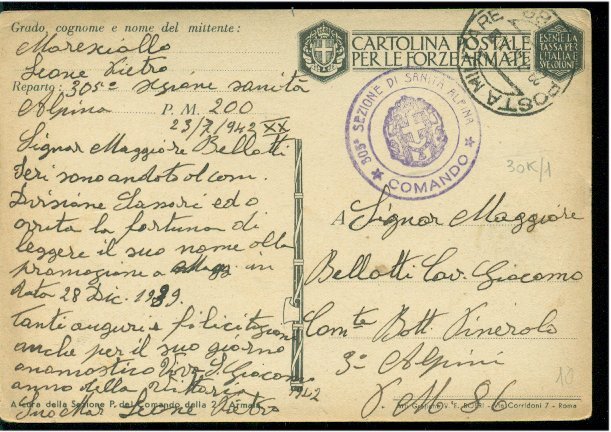 Grado, cognome e nome del mittente:
Maresciallo
Leone Pietro
Reparto: 305ª sezione sanità
Alpina P. M. 200
23/7/1942 XX
Signor Maggiore Bellotti
Ieri sono andato al com.
Divisione Sassari ed o
avuta la fortuna di
leggere il suo nome alla
promozione a Magg. in
data 28 Dic. 1939.
tanti auguri e felicitazioni
anche per il suo giorno
onomastico Viva S. Giacomo
anno della Vittoria 1942
Suo Mar Leone Pietro
A cura della Sezione P. del Comando della 2ª Armata
CARTOLINA POSTALE
PER LE FORZE ARMATE
ESENTE DA
TASSA PER
L'ITALIA E
SUE COLONIE
POSTA MILITARE
305ª SEZIONE DI SANITÀ ALPINA
COMANDO
30K/1
A Signor Maggiore
Bellotti Cav. Giacomo
Com.te Batt. Pinerolo
3° Alpini
P. M. 86
10
V. E. Corridoni 7 - Roma